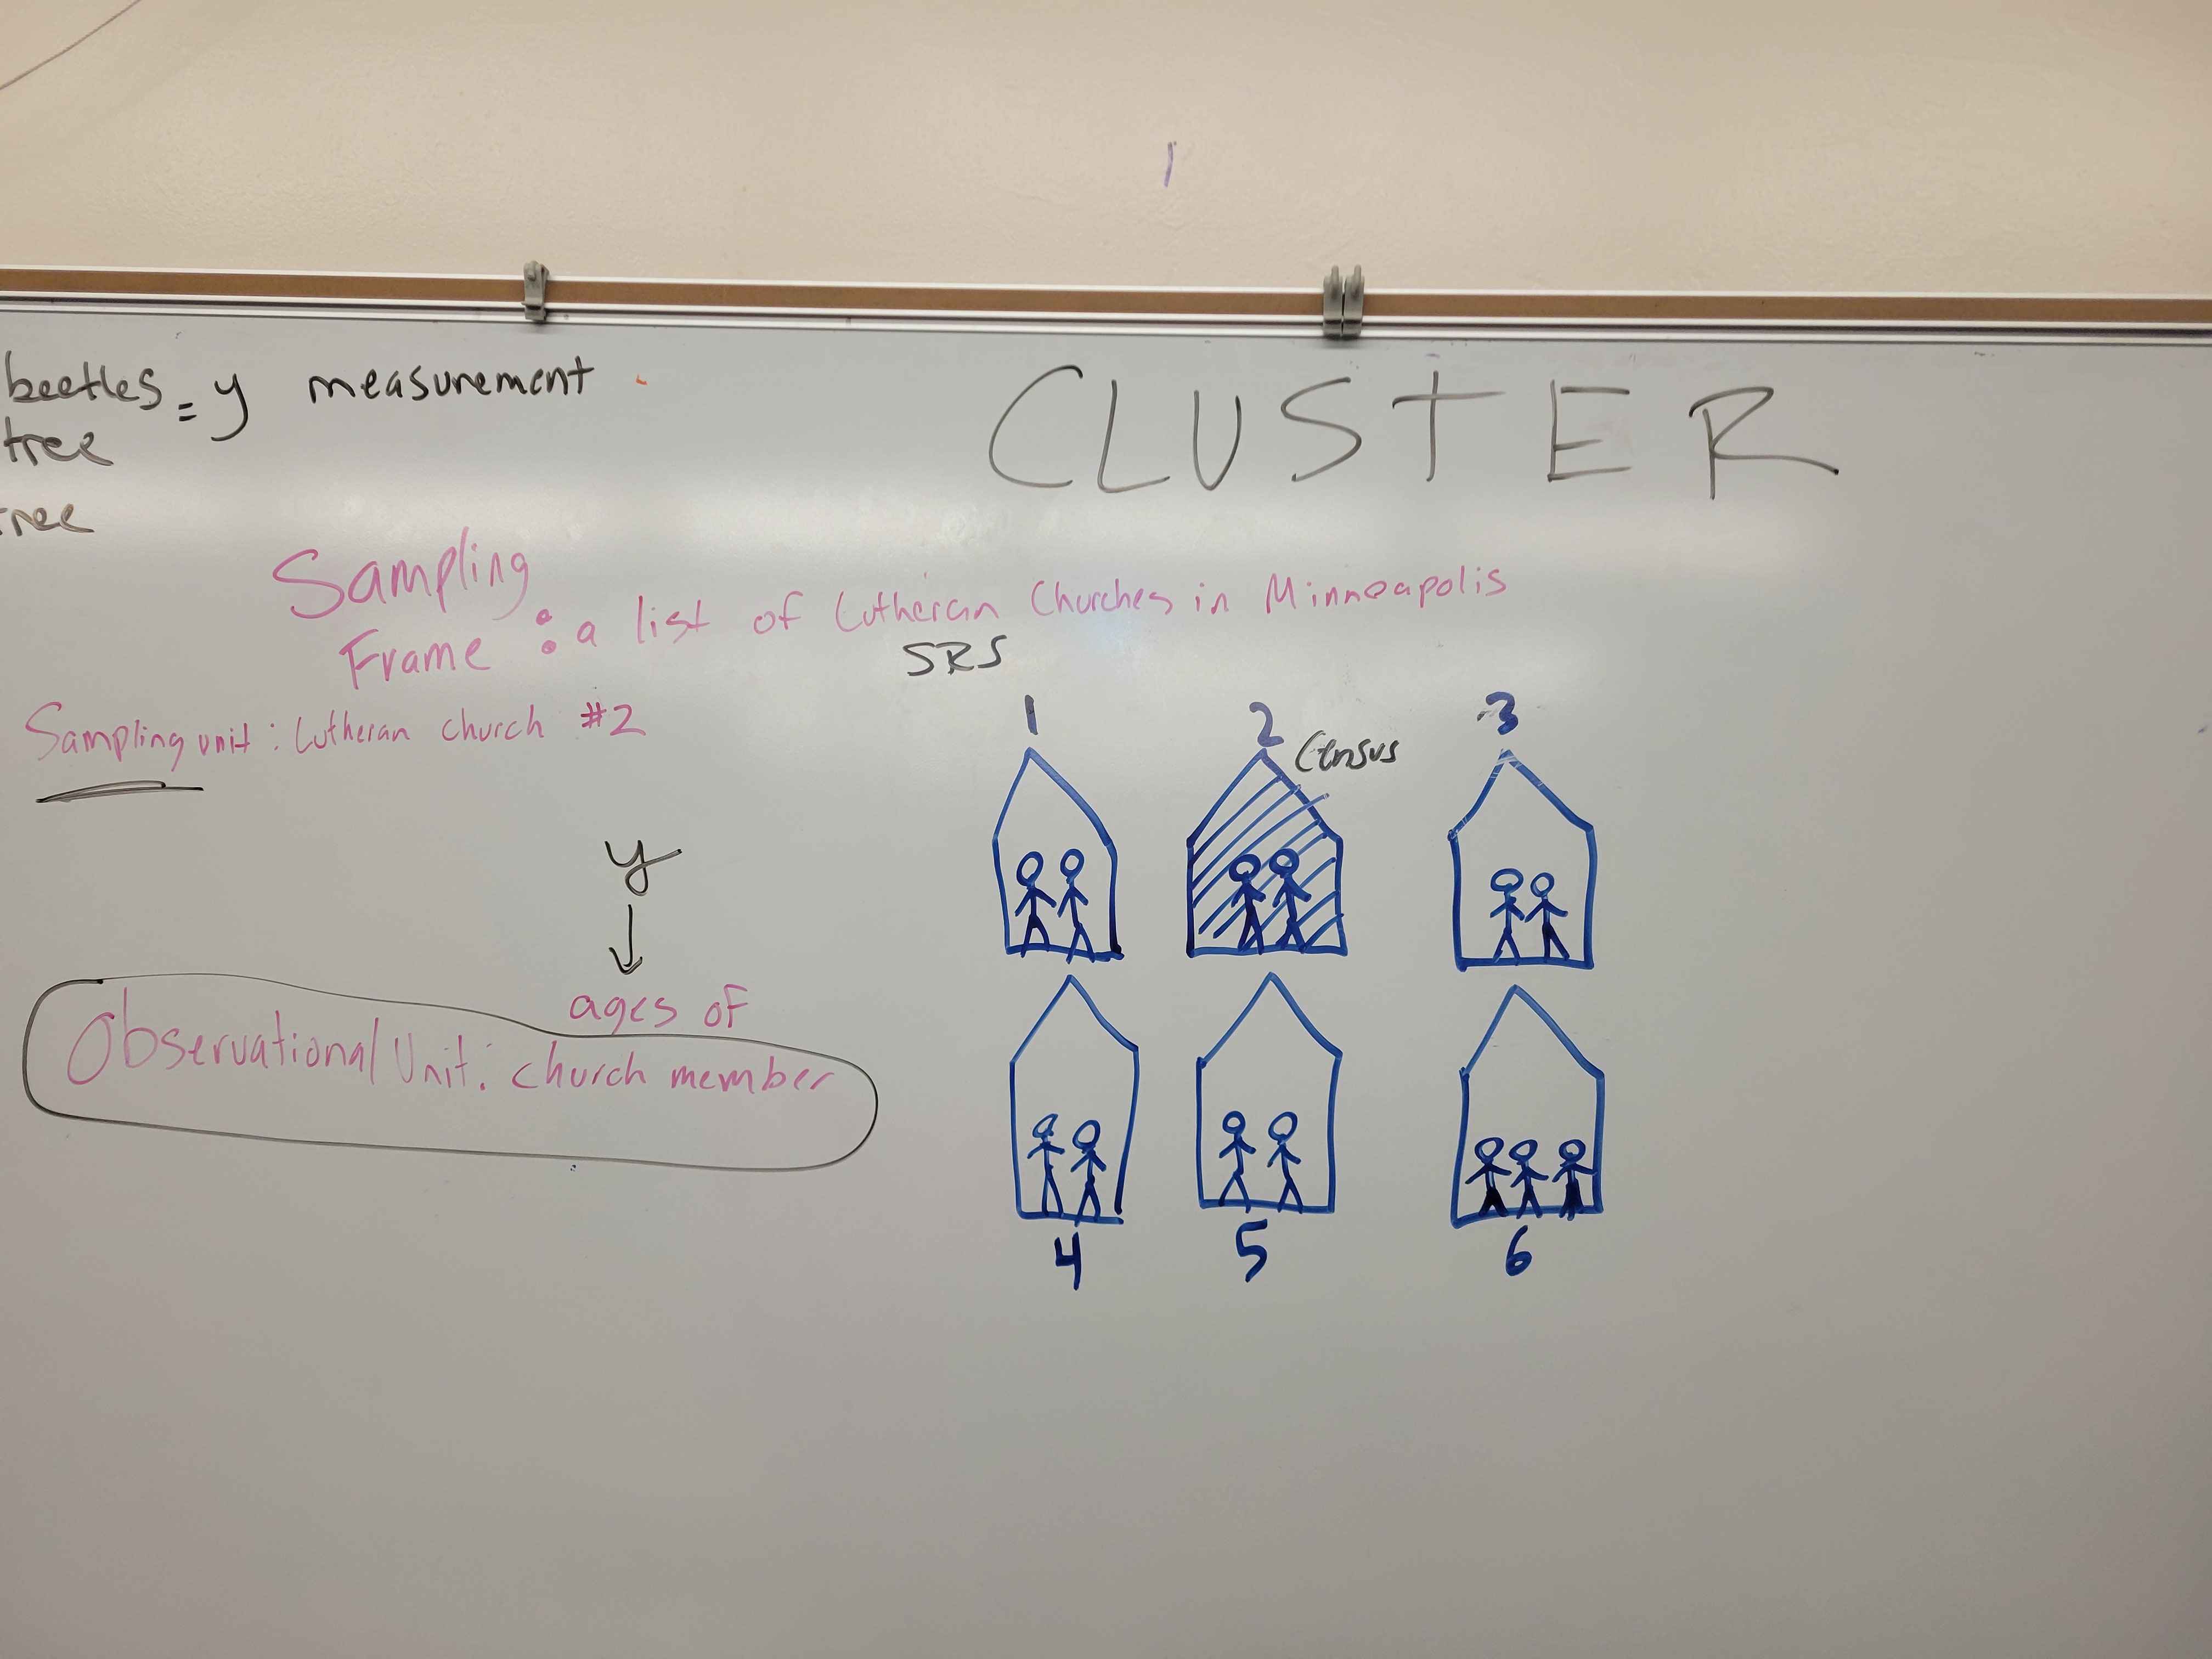 beetles = y measurement
tree
tree
CLUSTER
Sampling
Frame : a list of Lutheran Churches in Minneapolis
SRS
Sampling unit: Lutheran church #2
1 2 3
Census
y
ages of
Observational Unit: church member
4 5 6